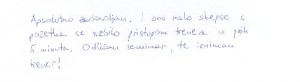 Apsolutno zadovoljan. I ono malo skepse s
početka se razbilo pristupom trenera u prvih
5 minuta. Odličan seminar, te izniman
trener!